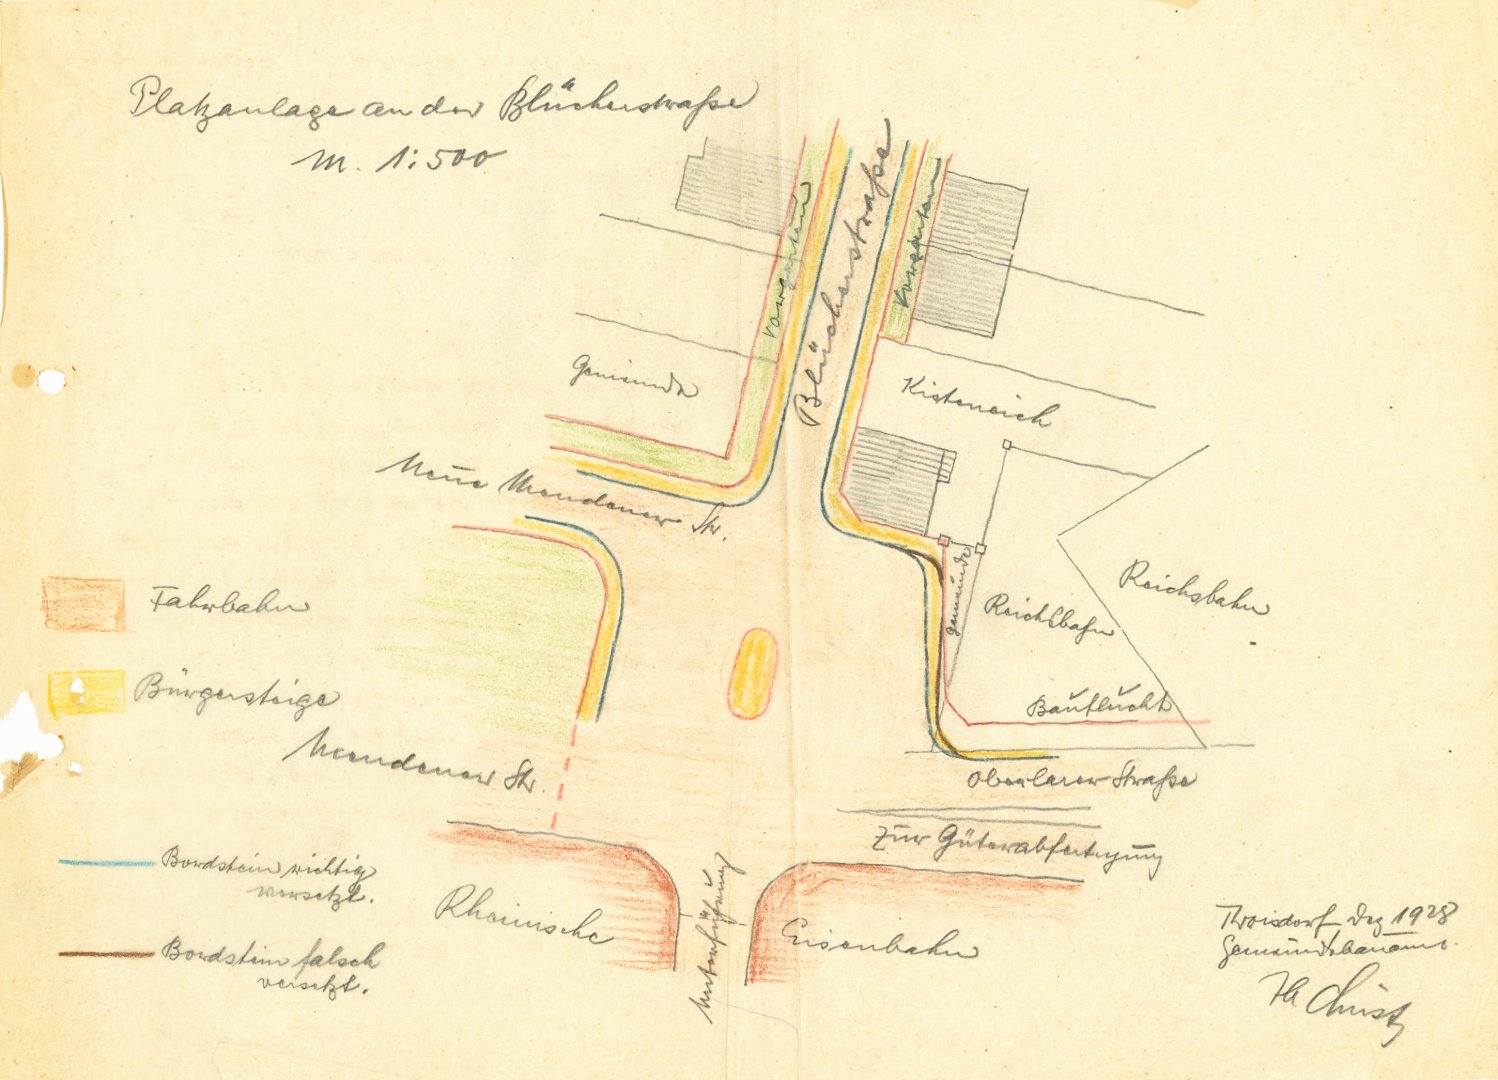 Platzanlage an der Blücherstraße
M. 1:500
Vorgarten
Blücherstraße
Vorgarten
Gemeinde
Kisteneich
Neue Mendener Str.
Gemeinde
Reichsbahn
Reichsbahn
Fahrbahn
Bürgersteige
Bauflucht
Mendener Str.
Oberlarer Straße
Zur Güterabfertigung
Bordstein richtig
versetzt.
Unterführung
Rheinische
Eisenbahn
Bordstein falsch
versetzt.
Troisdorf Dez 1928
Gemeindebauamt.
Christ